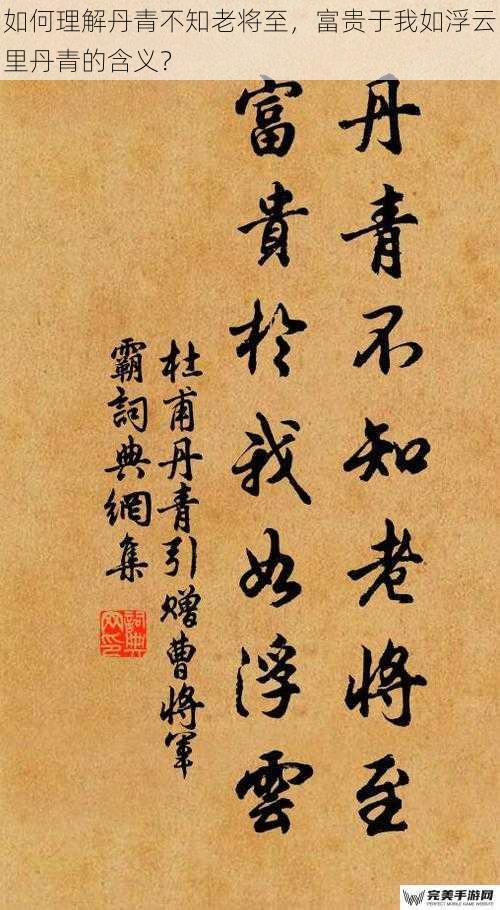 如何理解丹青不知老将至，富贵于我如浮云
里丹青的含义？
丹青不知老将至
富貴於我如浮雲
杜甫丹青引贈曹將軍
霸詞典網集
詞典
网印
完美手游网
PERFECT MOBILE GAME WEBSITE